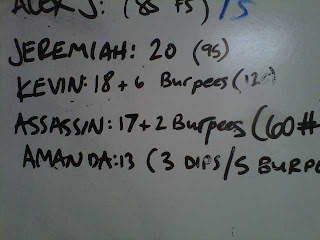 ALEX J: (85 FS) 15
JEREMIAH: 20 (95)
KEVIN: 18 + 6 Burpees (125)
ASSASSIN: 17 + 2 Burpees (60#
AMANDA: 13 (3 DIPS/5 BURPE